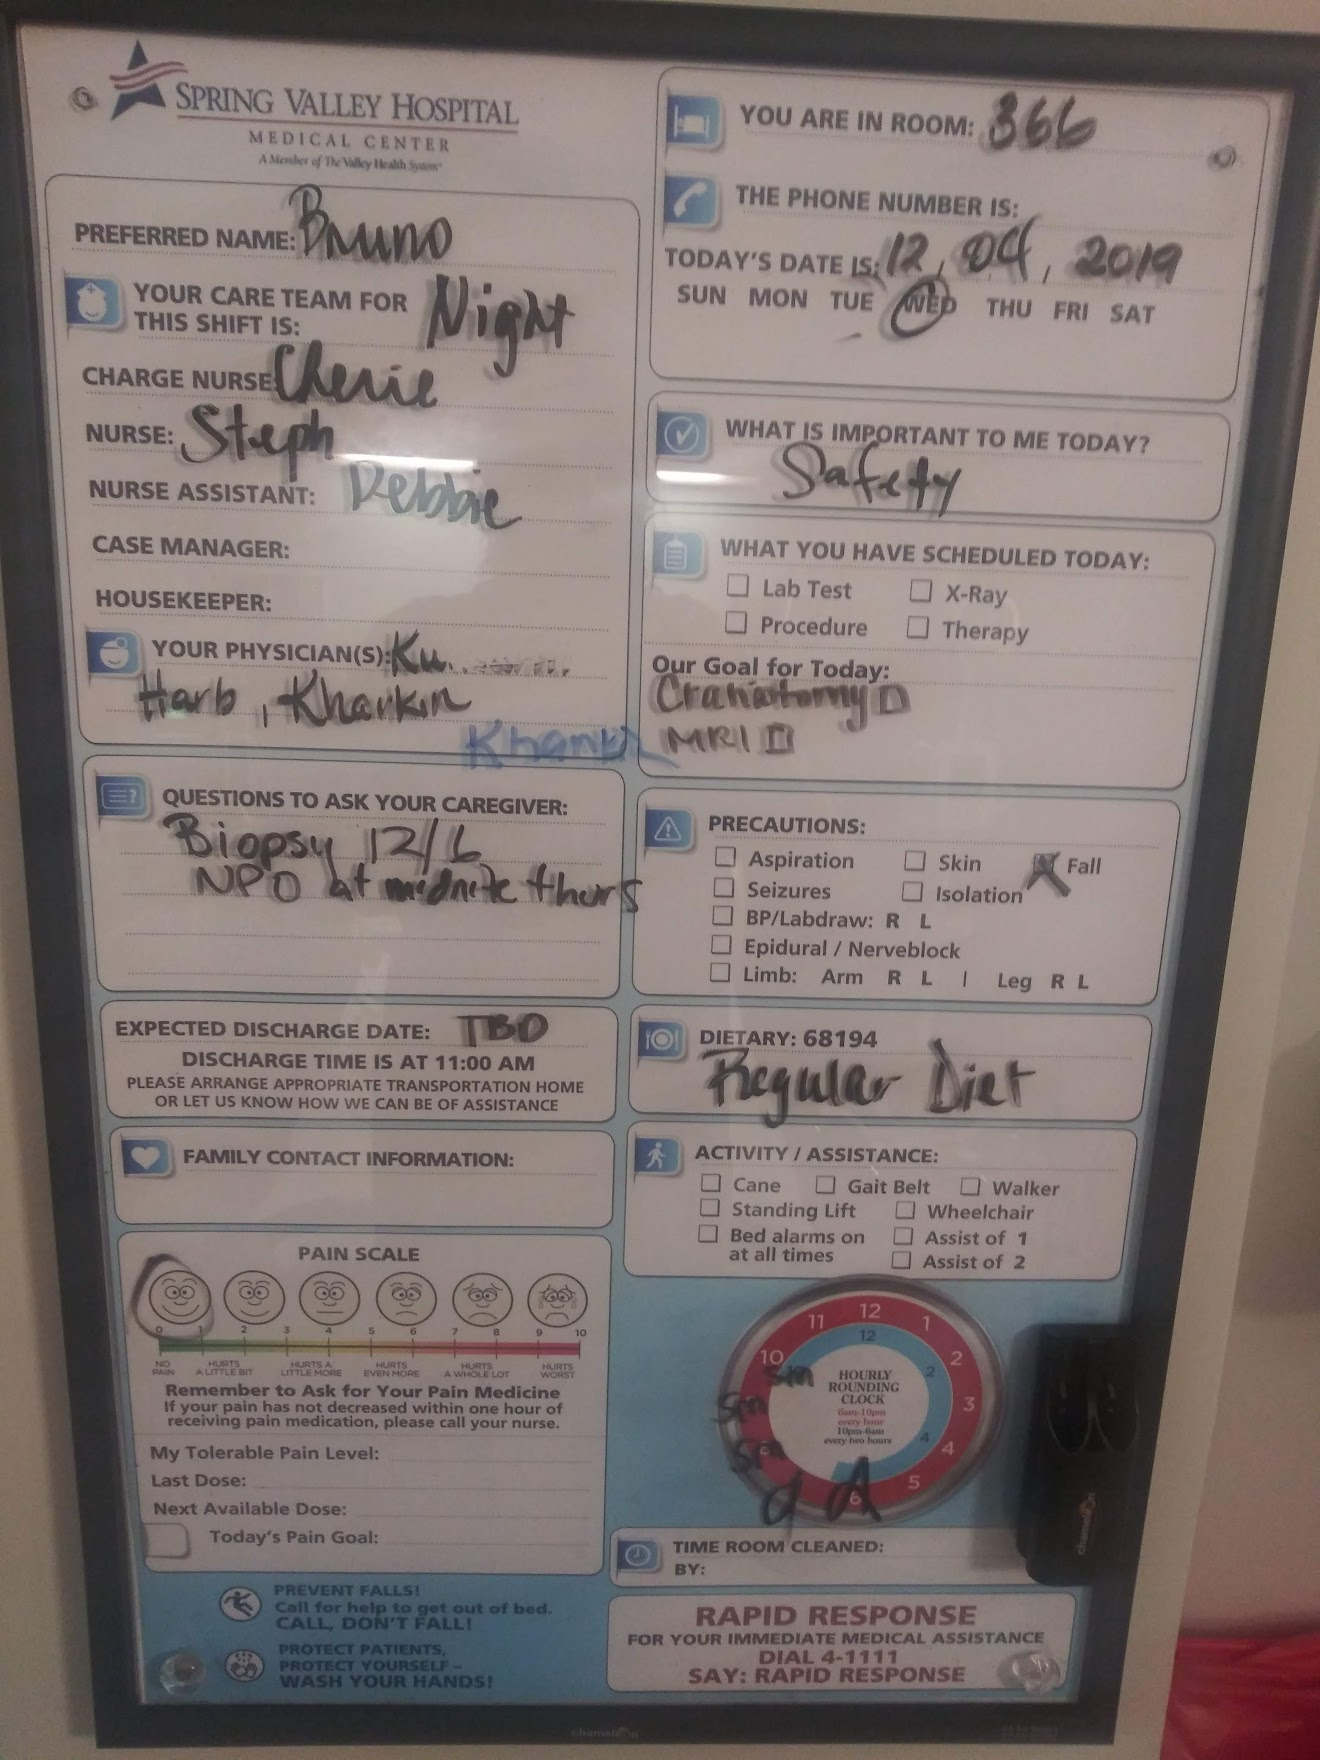 SPRING VALLEY HOSPITAL
MEDICAL CENTER
A Member of The Valley Health System
PREFERRED NAME: Bruno
YOUR CARE TEAM FOR
THIS SHIFT IS: Night
CHARGE NURSE: Cherie
NURSE: Steph
NURSE ASSISTANT: Debbie
CASE MANAGER:
HOUSEKEEPER:
YOUR PHYSICIAN(S): Ku.
Harb, Kharkin
QUESTIONS TO ASK YOUR CAREGIVER:
Biopsy 12/6
NPO at midnite thurs
EXPECTED DISCHARGE DATE: TBD
DISCHARGE TIME IS AT 11:00 AM
PLEASE ARRANGE APPROPRIATE TRANSPORTATION HOME
OR LET US KNOW HOW WE CAN BE OF ASSISTANCE
FAMILY CONTACT INFORMATION:
PAIN SCALE
0 1 2 3 4 5 6 7 8 9 10
NO PAIN HURTS A LITTLE BIT HURTS A LITTLE MORE HURTS EVEN MORE HURTS A WHOLE LOT HURTS WORST
Remember to Ask for Your Pain Medicine
If your pain has not decreased within one hour of
receiving pain medication, please call your nurse.
My Tolerable Pain Level:
Last Dose:
Next Available Dose:
Today's Pain Goal:
PREVENT FALLS!
Call for help to get out of bed.
CALL, DON'T FALL!
PROTECT PATIENTS,
PROTECT YOURSELF –
WASH YOUR HANDS!
YOU ARE IN ROOM: 366
THE PHONE NUMBER IS:
TODAY'S DATE IS: 12, 04, 2019
SUN MON TUE WED THU FRI SAT
WHAT IS IMPORTANT TO ME TODAY?
Safety
WHAT YOU HAVE SCHEDULED TODAY:
Lab Test X-Ray
Procedure Therapy
Our Goal for Today:
Craniotomy
MRI
PRECAUTIONS:
Aspiration Skin Fall
Seizures Isolation
BP/Labdraw: R L
Epidural / Nerveblock
Limb: Arm R L | Leg R L
DIETARY: 68194
Regular Diet
ACTIVITY / ASSISTANCE:
Cane Gait Belt Walker
Standing Lift Wheelchair
Bed alarms on Assist of 1
at all times Assist of 2
12
11 1
12
10 2
2
sm
HOURLY
ROUNDING
CLOCK
6am-10pm
every hour
10pm-6am
every two hours
sm 3
4 4
sm
5
6
TIME ROOM CLEANED:
BY:
RAPID RESPONSE
FOR YOUR IMMEDIATE MEDICAL ASSISTANCE
DIAL 4-1111
SAY: RAPID RESPONSE
chameleon